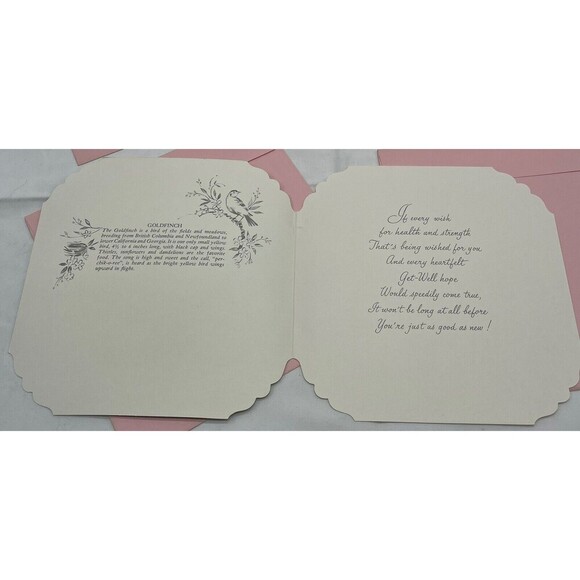 GOLDFINCH
The Goldfinch is a bird of the fields and meadows,
breeding from British Columbia and Newfoundland to
lower California and Georgia. It is our only small yellow
bird, 4½ to 6 inches long, with black cap and wings.
Thistles, sunflowers and dandelions are the favorite
food. The song is high and sweet and the call, "per-
chik-o-ree", is heard as the bright yellow bird swings
upward in flight.
If every wish
for health and strength
That's being wished for you
And every heartfelt
Get-Well hope
Would speedily come true,
It won't be long at all before
You're just as good as new!